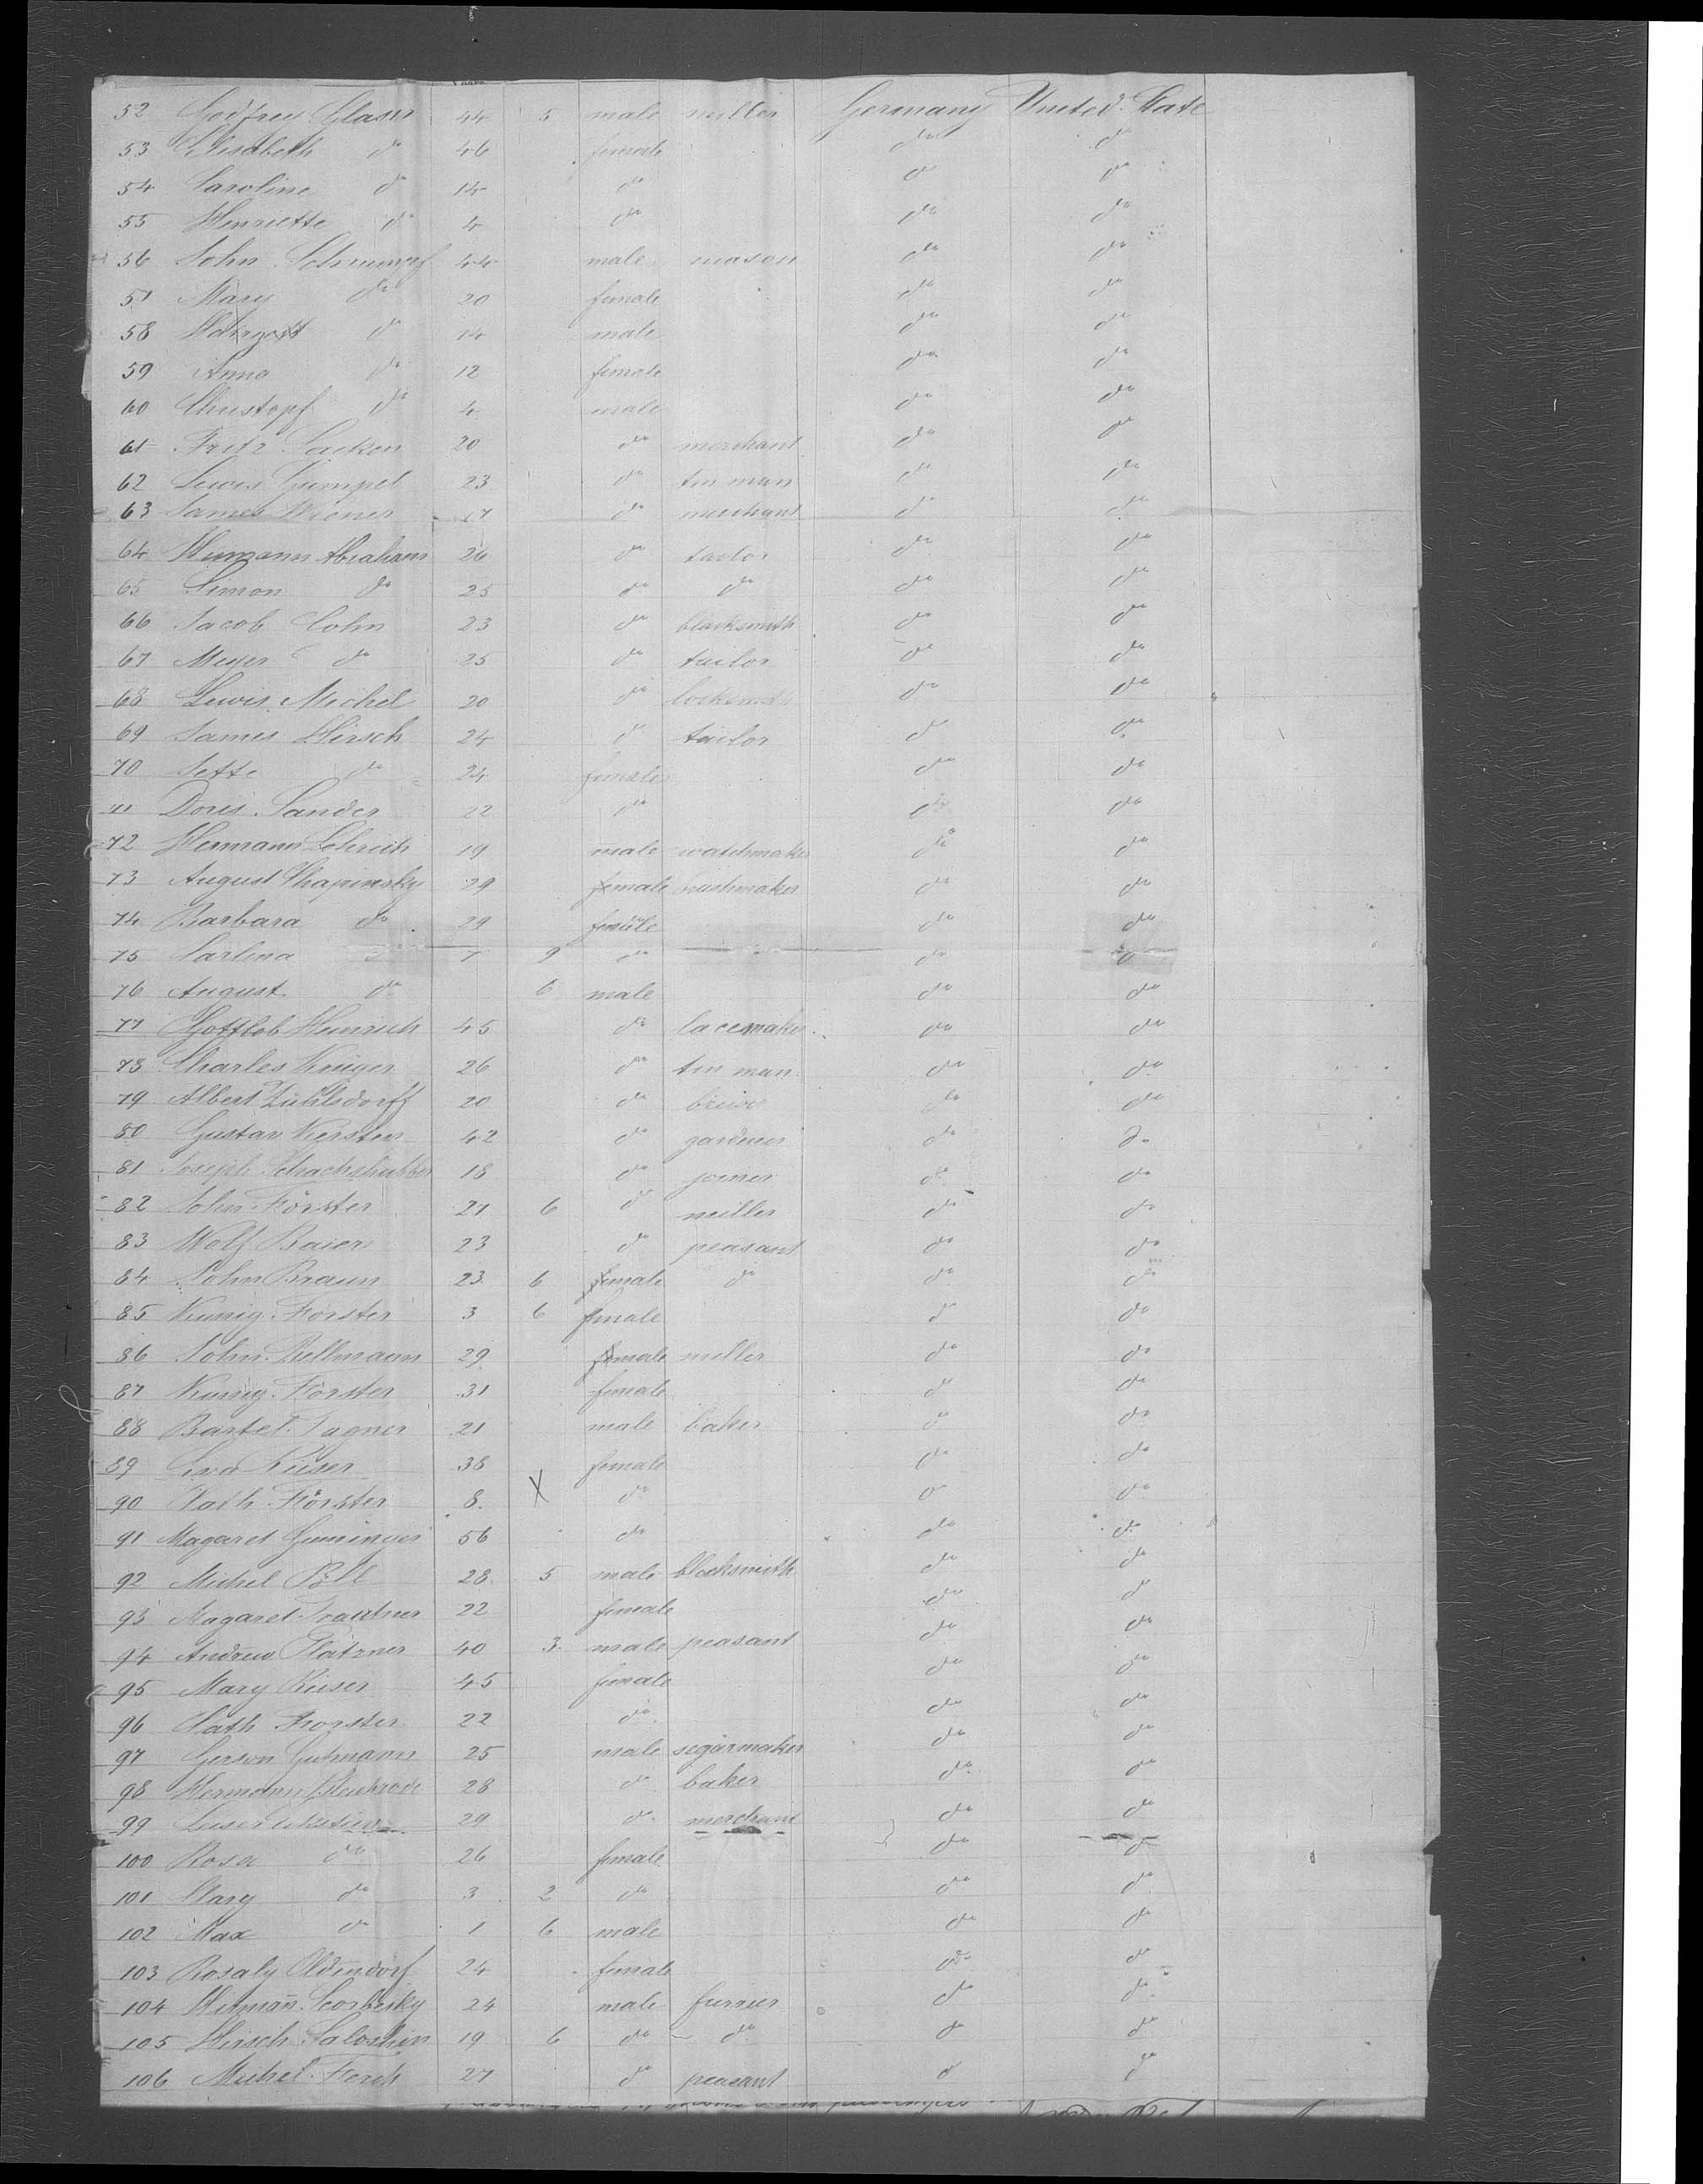 52 Godfrey Glaser 44 5 male miller Germany United State
53 Elisabeth do 46 female do do
54 Caroline do 14 do do do
55 Henriette do 4 do do do
56 John 44 male mason do do
57 Mary do 20 female do do
58 do 14 male do do
59 Anna do 12 female do do
60 Christopf do 4 male do do
61 Fritz Sacken 20 do merchant do do
62 Lewis Gumpel 23 do tin man do do
63 James Wiener 17 do merchant do do
64 Hermann Abraham 26 do tailor do do
65 Simon do 25 do do do do
66 Jacob Cohn 23 do blacksmith do do
67 Meyer do 25 do tailor do do
68 Lewis Michel 20 do locksmith do do
69 James Hirsch 24 do tailor do do
70 Jette do 24 female do do
71 Doris Sander 22 do do do
72 Hermann 19 male watchmaker do do
73 August Chapinsky 29 female brushmaker do do
74 Barbara do 29 female do do
75 Sarlina do 7 9 do do do
76 August do 6 male do do
77 Gottlob Heinrich 45 do lacemaker do do
78 Charles Kruger 26 do tin man do do
79 Albert Zuhlsdorff 20 do do do
80 Gustav Kersten 42 do gardener do do
81 Joseph 18 do joiner do do
82 John Förster 27 6 do miller do do
83 Wolf Baier 23 do peasant do do
84 John Braun 23 6 female do do do
85 Kunig. Forster 3 6 female do do
86 John Bellmann 29 female miller do do
87 Kunig. Förster 31 female do do
88 Bartel Tagner 21 male baker do do
89 Eva Rieser 38 female do do
90 Cath. Förster 8 X do do do
91 Magaret 56 do do do
92 Michel Böll 28 5 male blacksmith do do
93 Magaret Trautner 22 female do do
94 Andrew Plätzner 40 3 male peasant do do
95 Mary Rieser 45 female do do
96 Cath Forster 22 do do do
97 Gerson Gutmann 25 male segarmaker do do
98 Hermann 28 do baker do do
99 29 do merchant do do
100 Rosa do 26 female do do
101 Mary do 3 2 do do do
102 Max do 1 6 male do do
103 Rosaly Oldendorf 24 female do do
104 24 male furrier do do
105 Hirsch 19 6 do do do do
106 Michel Forch 27 do peasant do do